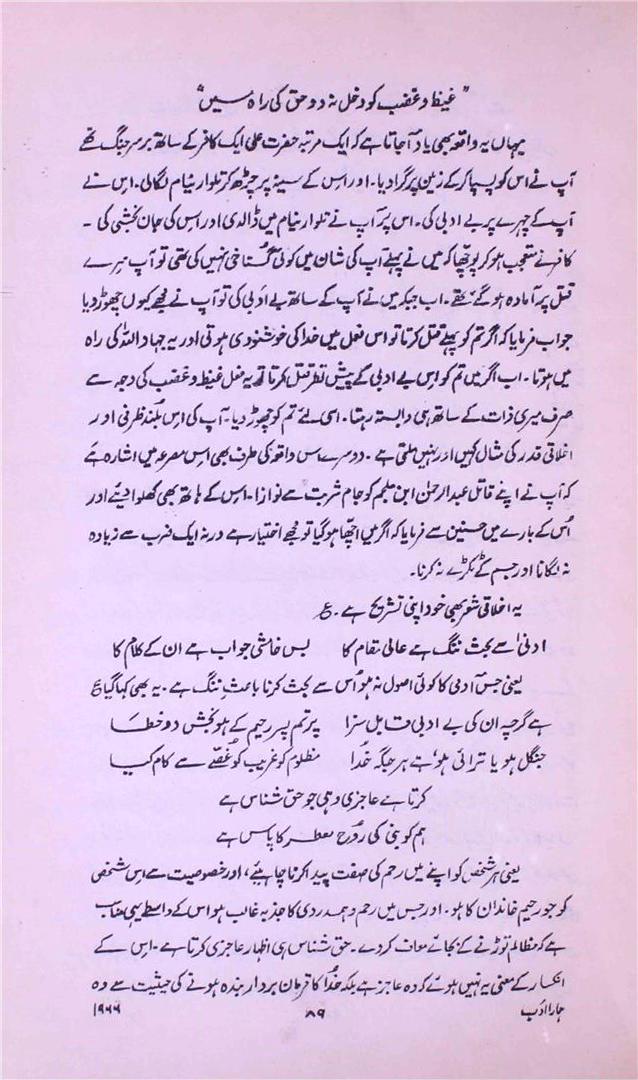 ”غیظ و غضب کو دخل نہ دو حق کی راہ میں“
یہاں یہ واقعہ بھی یاد آجاتا ہے کہ ایک مرتبہ حضرت علی ایک کافر کے ساتھ برسرِ جنگ تھے
آپ نے اس کو پسپا کر کے زمین پر گرا دیا۔ اور اس کے سینہ پر چڑھ کر تلوار نیام نکالی۔ اس نے
آپ کے چہرے پر بے ادبی کی۔ اس پر آپ نے تلوار نیام میں ڈالدی اور اس کی جان بخشی کی۔
کافر نے متعجب ہو کر پوچھا کہ میں نے پہلے آپ کی شان میں کوئی گستاخی نہیں کی تھی تو آپ میرے
قتل پر آمادہ ہو گئے تھے۔ اب جبکہ میں نے آپ کے ساتھ بے ادبی کی تو آپ نے مجھے کیوں چھوڑ دیا
جواب فرمایا کہ اگر تم کو پہلے قتل کرتا تو اس فعل میں خدا کی خوشنودی ہوتی اور یہ جہاد اللہ کی راہ
میں ہوتا۔ اب اگر میں تم کو اس بے ادبی کے پیش نظر قتل کرتا تو یہ فعل غیظ و غضب کی وجہ سے
صرف میری ذات کے ساتھ ہی وابستہ رہتا۔ اسی لئے تم کو چھوڑ دیا۔ آپ کی اس بلند ظرفی اور
اخلاقی قدر کی مثال کہیں اور نہیں ملتی ہے۔ دوسرے اس واقعہ کی طرف بھی اس مصرعہ میں اشارہ ہے
کہ آپ نے اپنے قاتل عبدالرحمٰن ابن ملجم کو جام شربت سے نوازا۔ اس کے ہاتھ بھی کھلوا دیئے اور
اُس کے بارے میں حسنین سے فرمایا کہ اگر میں اچھا ہو گیا تو مجھے اختیار ہے ورنہ ایک ضرب سے زیادہ
نہ لگانا اور جسم کے ٹکڑے نہ کرنا۔
یہ اخلاقی شعر بھی خود اپنی تشریح ہے۔ ع
ادنیٰ سے بحث ننگ ہے عالی مقام کا بس خامشی جواب ہے ان کے کلام کا
یعنی جس آدمی کا کوئی اصول نہ ہو اُس سے بحث کرنا باعثِ ننگ ہے۔ یہ بھی کہا گیا ع
ہے گرچہ ان کی بے ادبی قابل سزا پر تم پسر رحیم کے ہو بخش دو خطا
جنگل ہو یا ترائی ہو ہے ہر جگہ خدا مظلوم کو غریب کو غصّے سے کام کیا
کرتا ہے عاجزی وہی جو حق شناس ہے
ہم کو نبیؐ کی روح معطر کا پاس ہے
یعنی ہر شخص کو اپنے میں رحم کی صفت پیدا کرنا چاہئیے، اور خصوصیت سے اس شخص
کو جو رحیم خاندان کا ہو۔ اور جس میں رحم و ہمدردی کا جذبہ غالب ہو اس کے واسطے یہی
ہے کہ مظالم توڑنے کے بجائے معاف کر دے۔ حق شناس ہی اظہار عاجزی کرتا ہے۔ اس کے
انکسار کے معنی یہ نہیں ہوتے کہ وہ عاجز ہے بلکہ خدا کا فرمان بردار بندہ ہونے کی حیثیت سے وہ
ہمارا ادب ۸۹ ۱۹۶۶